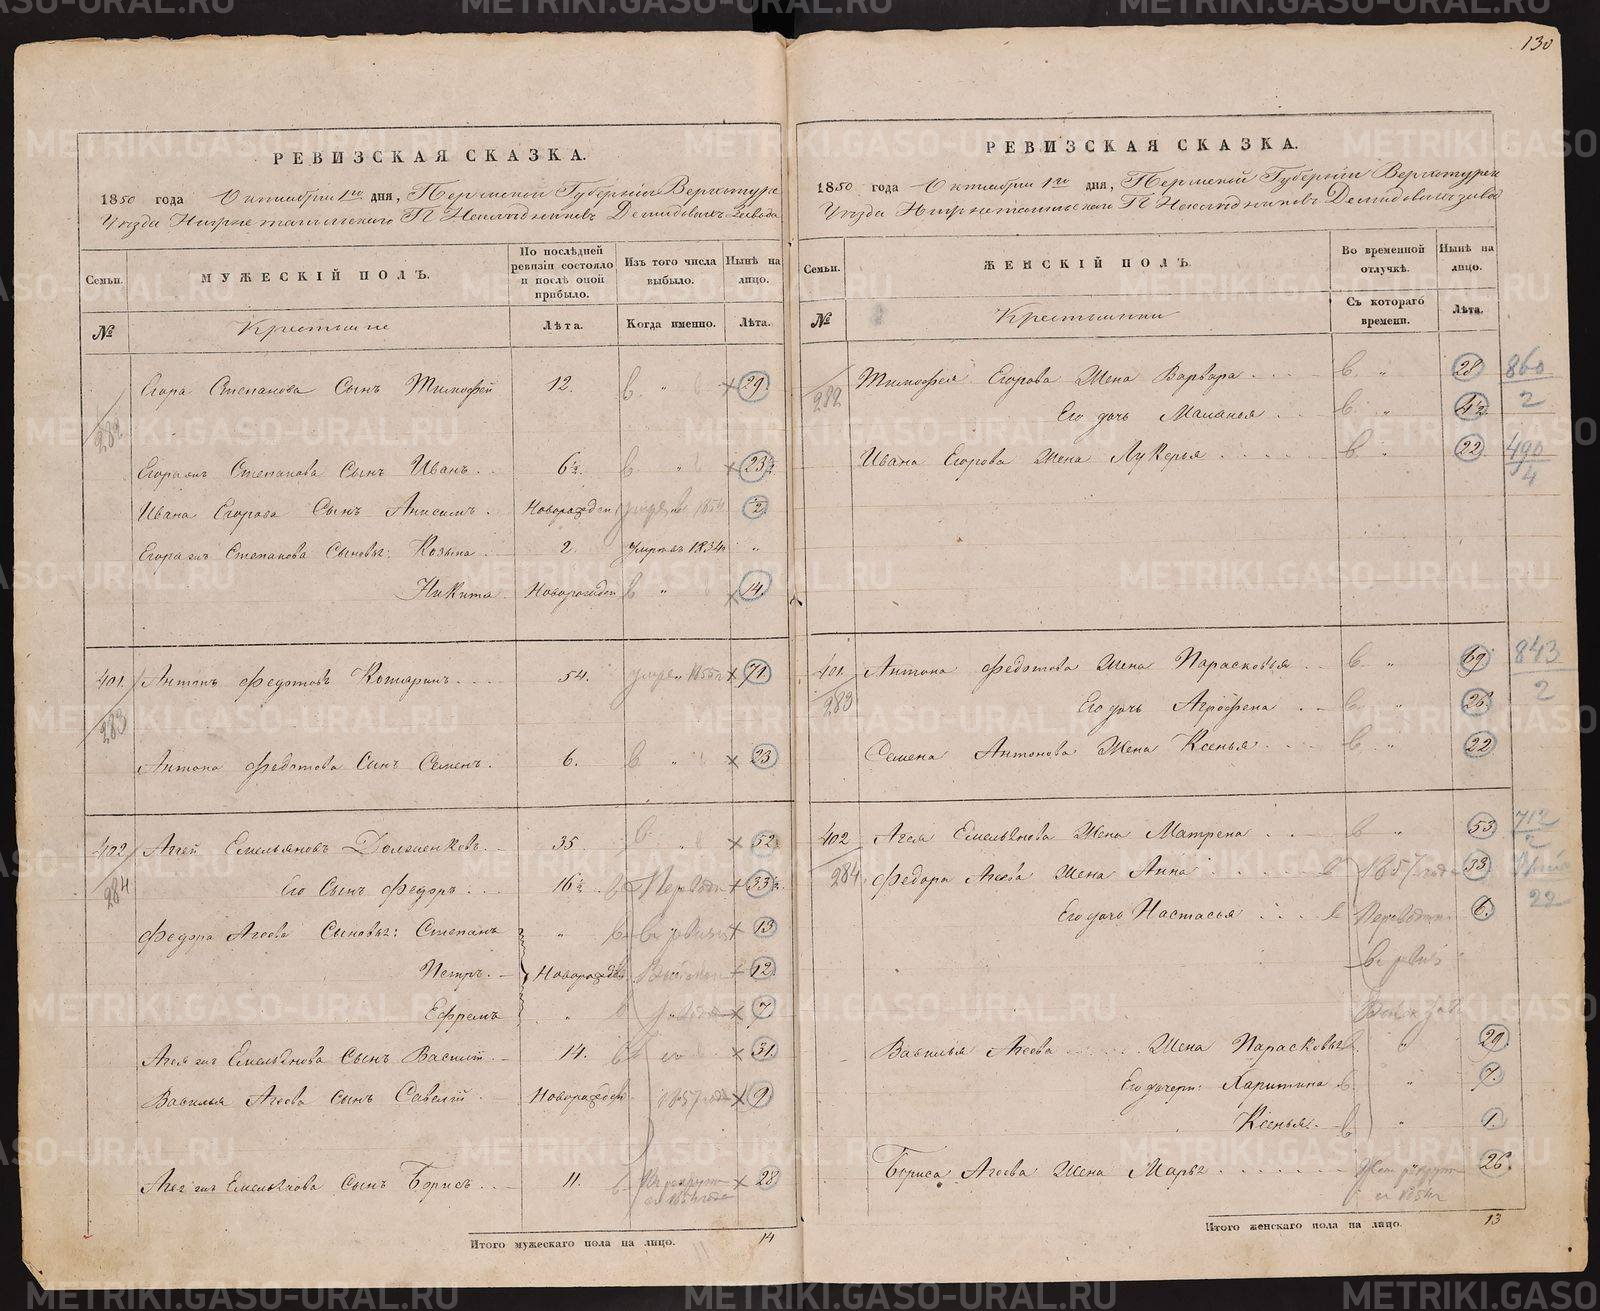 130
РЕВИЗСКАЯ СКАЗКА.
1850 года Октября 1го дня, Пермской Губерніи Верхотурск
Уезда Нижнетагильскаго Г. Наследниковъ Демидовыхъ Завода
Семьи.
МУЖЕСКІЙ ПОЛЪ.
По послѣдней ревизіи состояло и послѣ оной прибыло.
Изъ того числа выбыло.
Нынѣ на лицо.
№
Крестьяне
Лѣта.
Когда именно.
Лѣта.
282
Егора Степанова Сынъ Тимофей 12. 29
Егора жъ Степанова Сынъ Иванъ. 6½ 23½
Ивана Егорова Сынъ Анисимъ. Новорожден 2
Егора жъ Степанова Сыновья: Козьма 2. умре въ 1834 "
Никита Новорожден 14.
401. Антонъ Федотовъ Котаринъ 54. 71
283
Антона Федотова Сынъ Семенъ. 6. 23
402 Аггей Емельяновъ 35 52
284 Его Сынъ Федоръ 16½ 33½
Федора Агеева Сыновья: Степанъ " 13
Петръ. Новорожден 12
Ефремъ " 7
Агея жъ Емельянова Сынъ Василій 14. 31.
Василья Агеева Сынъ Савелій Новорожден 1857 года 9
Агея жъ Емельянова Сынъ Борисъ 11. 28
Итого мужескаго пола на лицо. 14
РЕВИЗСКАЯ СКАЗКА.
1850 года Октября 1го дня, Пермской Губерніи Верхотурск
Уезда Нижнетагильскаго Г. Наследниковъ Демидовыхъ завод
Семьи.
ЖЕНСКІЙ ПОЛЪ.
Во временной отлучкѣ.
Нынѣ на лицо.
№
Крестьянки
Съ котораго времени.
Лѣта.
282 Тимофея Егорова Жена Варвара 28 860
Его дочь Маланья 4½ 2
Ивана Егорова Жена Лукерья 22 490
4
401. Антона Федотова Жена Парасковья 69 843
283 Его дочь Агрофена 26 2
Семена Антонова Жена Ксенья 22
402 Агея Емельянова Жена Матрена 53 712
284 Федора Агеева Жена Анна 1857 33
Его дочь Настасья 6. 22
Василья Агеева Жена Парасковья 29
Его дочери: Харитина 7.
Ксенья. 1.
Бориса Агеева Жена Марья 26
Итого женскаго пола на лицо. 13
METRIKI.GASO-URAL.RU